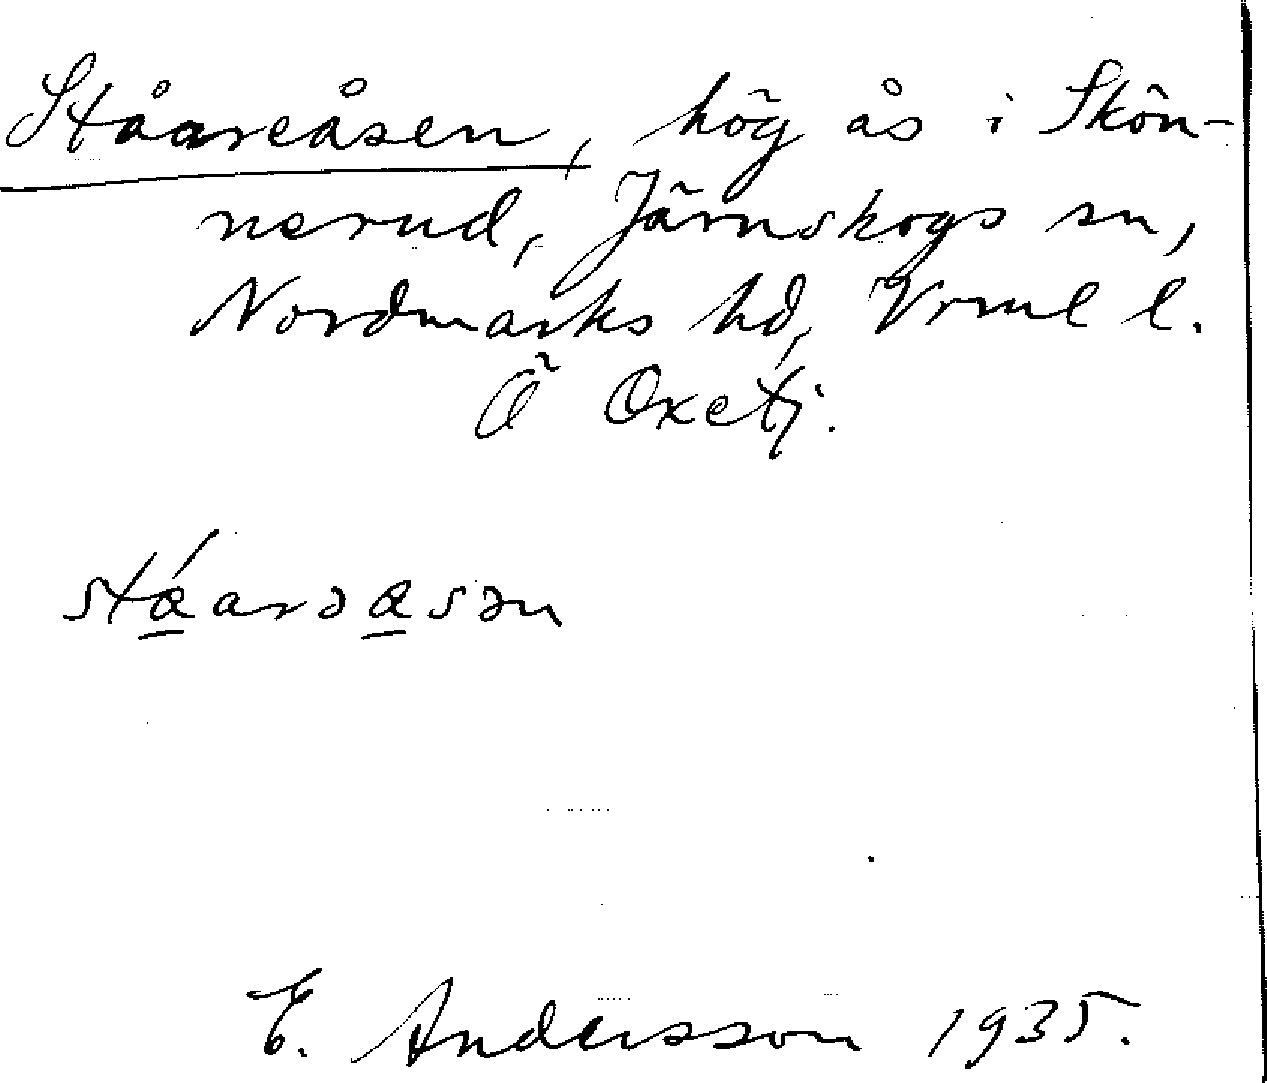 Ståareåsen, hög ås i Skön-
nerud, Järnskogs sn,
Nordmarks hd, Vrml l.
Ö Oxetj.
stáarəasən
E. Andersson 1935.